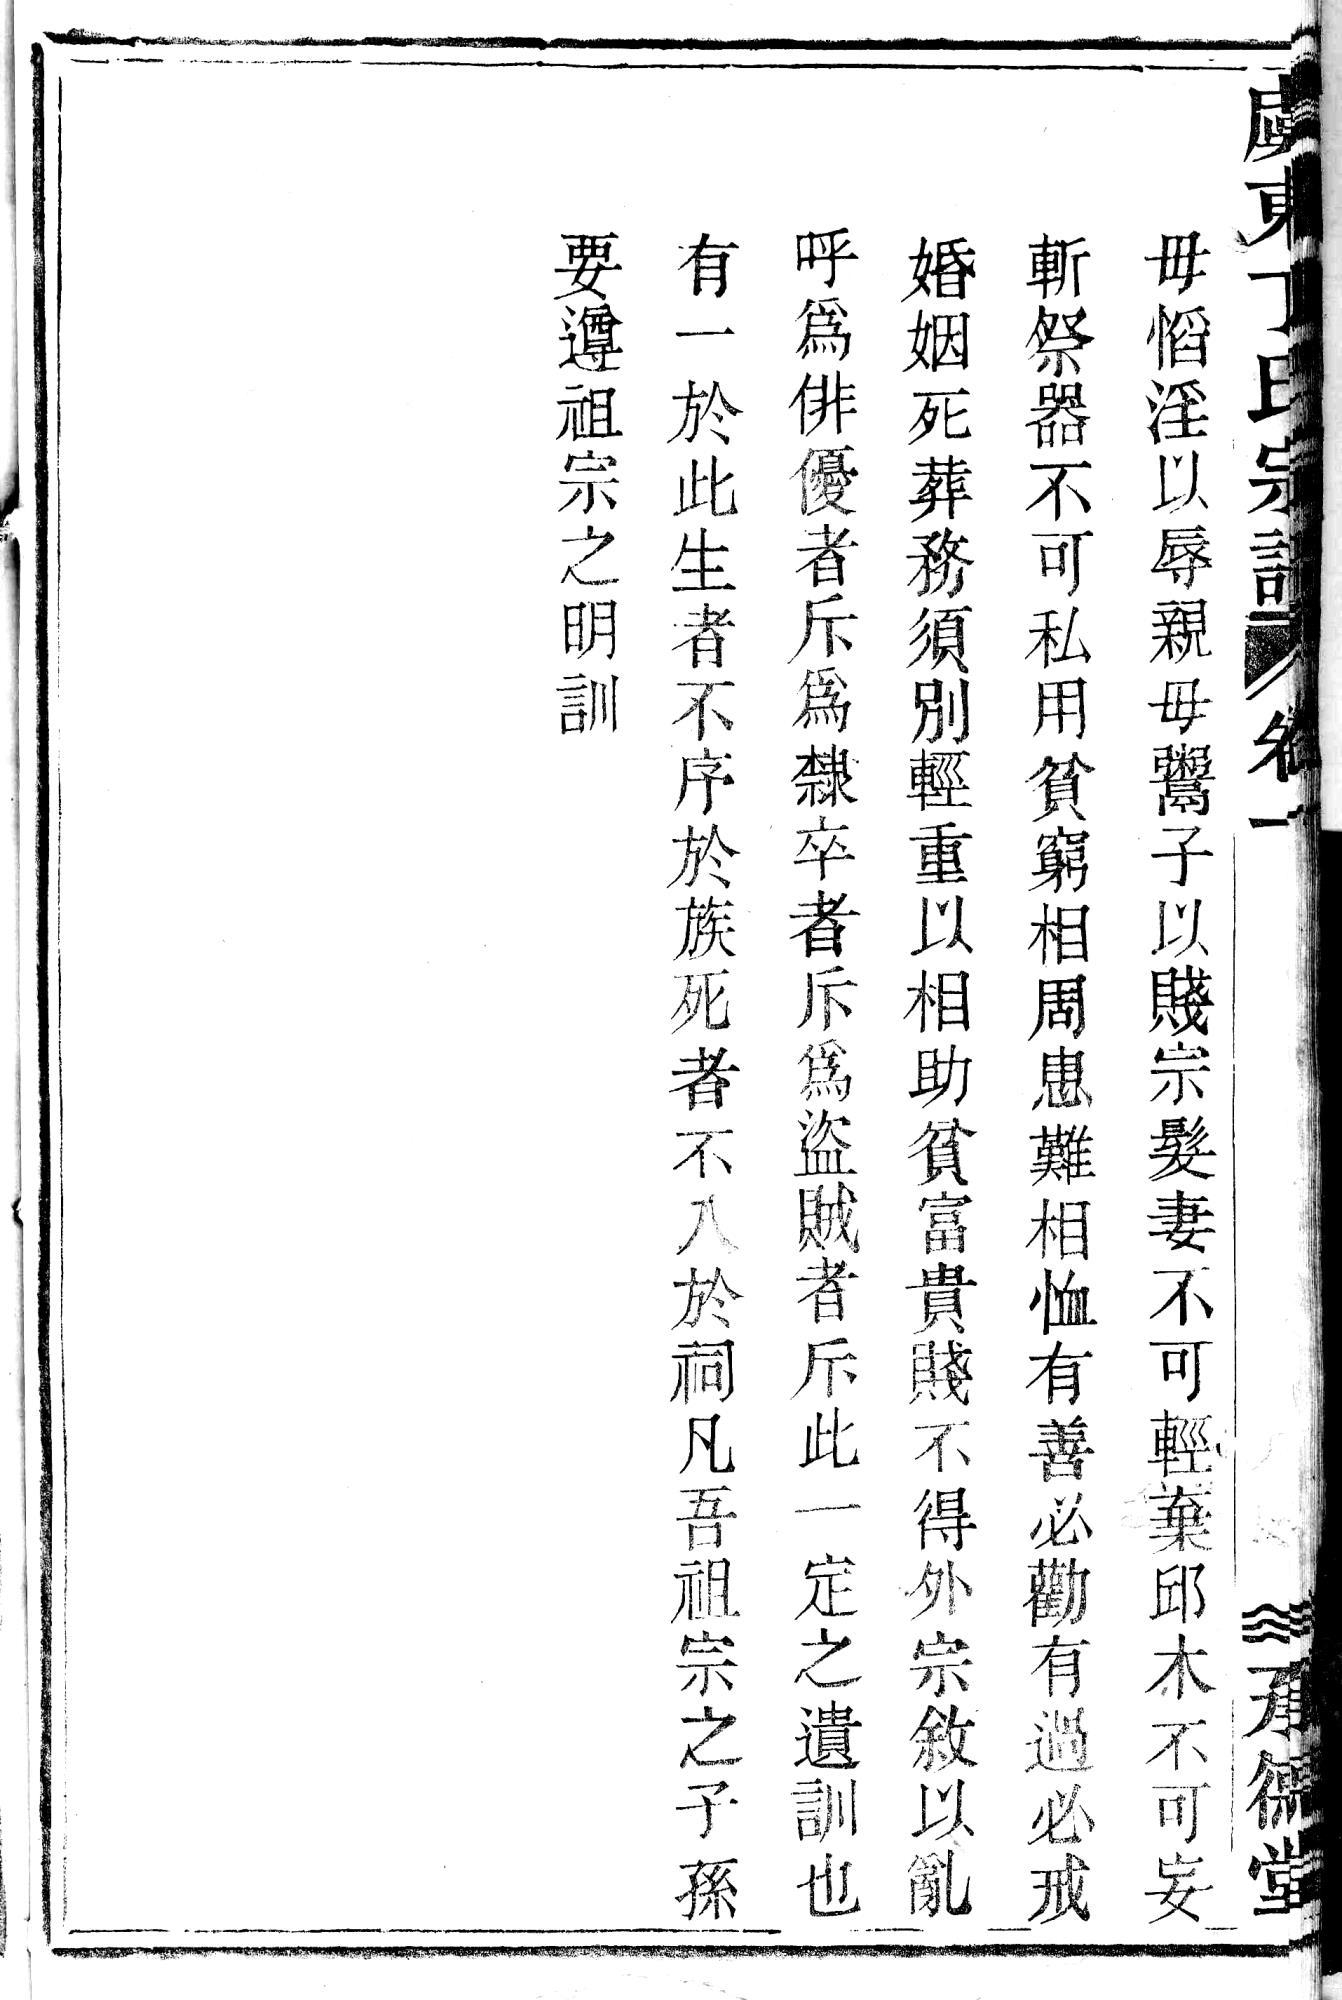 虞東丁氏宗譜 卷一 承德堂
毋慆淫以辱親毋鬻子以賤宗髮妻不可輕棄邱木不可妄
斬祭器不可私用貧窮相周患難相恤有善必勸有過必戒
婚姻死葬務須別輕重以相助貧富貴賤不得外宗敘以亂
呼爲俳優者斥爲隸卒者斥爲盜賊者斥此一定之遺訓也
有一於此生者不序於族死者不入於祠凡吾祖宗之子孫
要遵祖宗之明訓